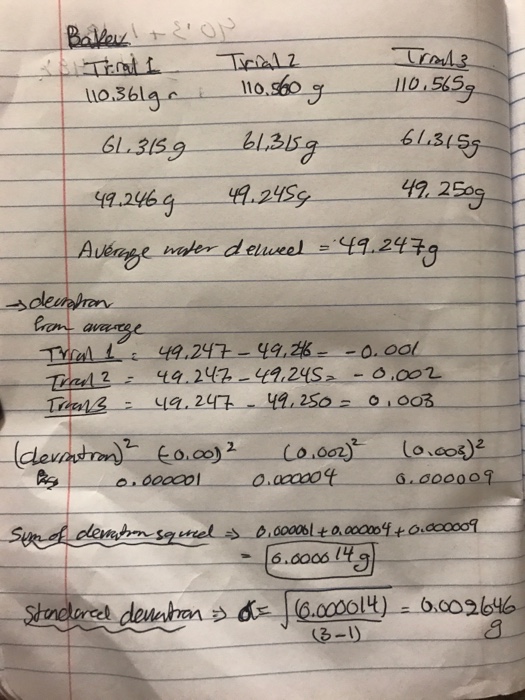 Baker
Trial 1 Trial 2 Trial 3
110.361g 110.560 g 110.565g
61.315g 61.315g 61.315g
49.246g 49.245g 49.250g
Average water delivered = 49.247g
→ deviation
from average
Trial 1 = 49.247 - 49.246 = -0.001
Trial 2 = 49.247 - 49.245 = -0.002
Trial 3 = 49.247 - 49.250 = 0.003
(deviation)² (-0.001)² (0.002)² (0.003)²
0.000001 0.000004 0.000009
Sum of deviation squared ⇒ 0.000001 + 0.000004 + 0.000009
= 0.000014g
Standered deviation ⇒ σ = √(0.000014)/(3-1) = 0.002646 g